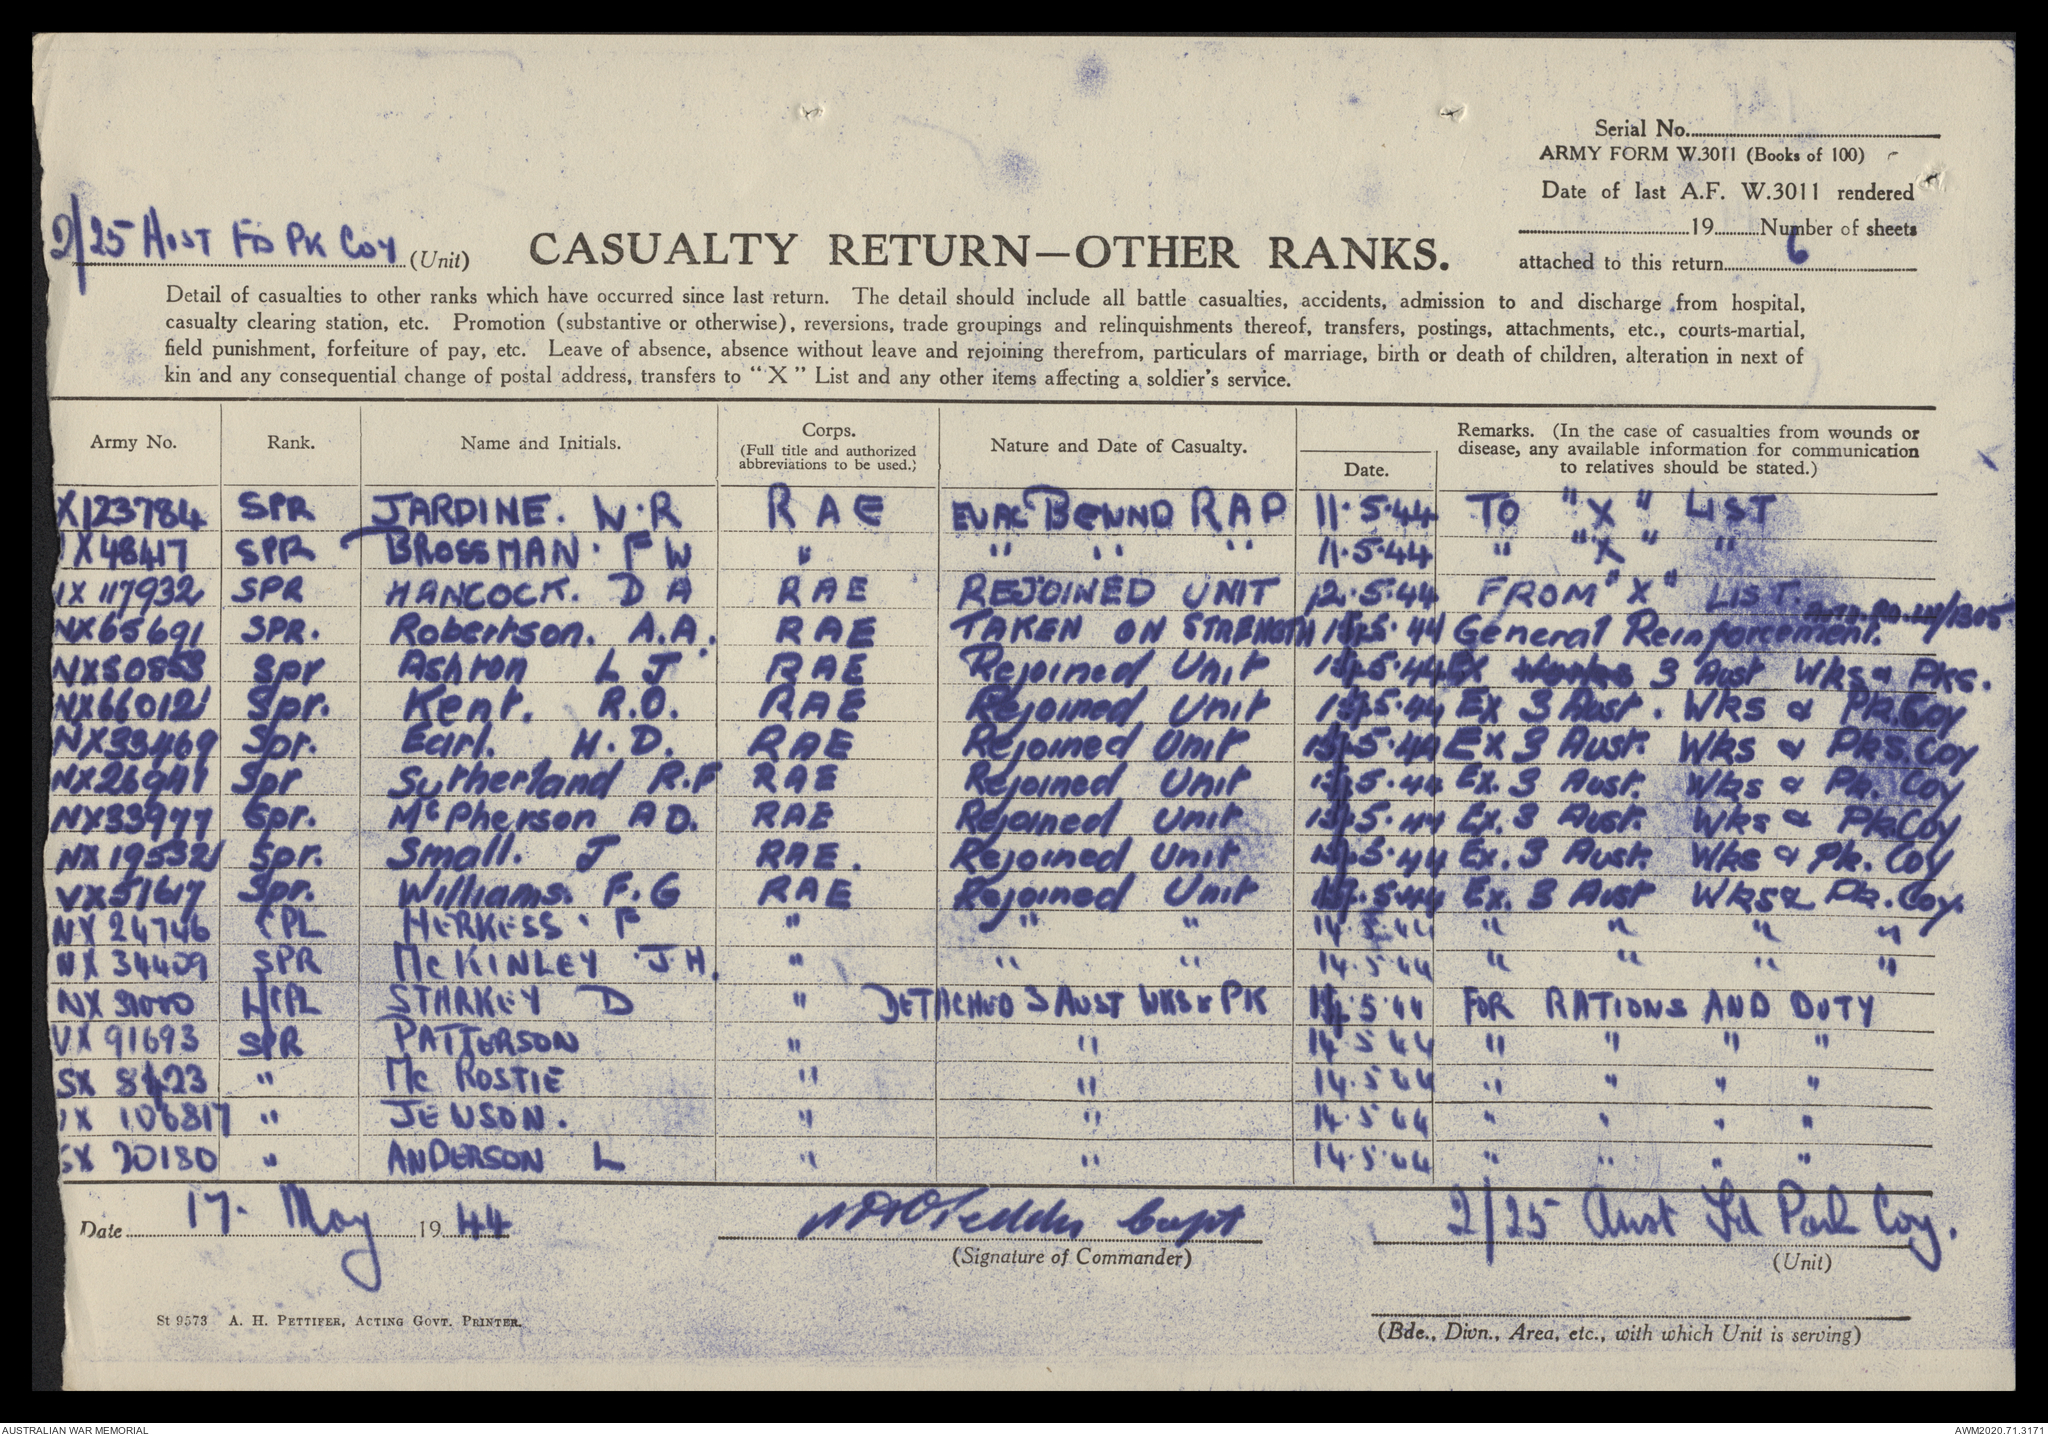 Serial No.
ARMY FORM W.3011 (Books of 100)
Date of last A.F. W.3011 rendered
19 Number of sheets
attached to this return 6
2/25 AUST FD PK COY (Unit)
CASUALTY RETURN—OTHER RANKS.
Detail of casualties to other ranks which have occurred since last return. The detail should include all battle casualties, accidents, admission to and discharge from hospital,
casualty clearing station, etc. Promotion (substantive or otherwise), reversions, trade groupings and relinquishments thereof, transfers, postings, attachments, etc., courts-martial,
field punishment, forfeiture of pay, etc. Leave of absence, absence without leave and rejoining therefrom, particulars of marriage, birth or death of children, alteration in next of
kin and any consequential change of postal address, transfers to "X" List and any other items affecting a soldier's service.
Army No. Rank. Name and Initials. Corps. (Full title and authorized abbreviations to be used.) Nature and Date of Casualty. Date. Remarks. (In the case of casualties from wounds or disease, any available information for communication to relatives should be stated.)
X123784 SPR JARDINE. W.R RAE EVAC BEYOND RAP 11.5.44 TO "X" LIST
X48417 SPR BROSSMAN. F W " " " " 11.5.44 " "X" "
X117932 SPR HANCOCK. D A RAE REJOINED UNIT 12.5.44 FROM "X" LIST.
NX65691 SPR. Robertson. A.A. RAE TAKEN ON STRENGTH 5.44 General Reinforcement. /1305
NX50853 Spr Ashton L J RAE Rejoined Unit 5.44 Ex 3 Aust Wks & Pks.
NX66012 Spr. Kent. R.O. RAE Rejoined Unit 5.44 Ex 3 Aust. Wks & Pk. Coy
NX33469 Spr. Earl. H.D. RAE Rejoined Unit 5.44 Ex 3 Aust. Wks & Pks. Coy
NX26941 Spr Sutherland R.F RAE Rejoined Unit 5.44 Ex. 3 Aust. Wks & Pk. Coy
NX33977 Spr. McPherson A D. RAE Rejoined Unit 5.44 Ex. 3 Aust. Wks & Pk. Coy
NX19532 Spr. Small. J RAE. Rejoined Unit 5.44 Ex. 3 Aust. Wks & Pk. Coy
VX51617 Spr. Williams. F.G RAE Rejoined Unit 5.44 Ex. 3 Aust Wks & Pk. Coy.
NX 24746 CPL HERKESS. F " " " 14.5.44 " " " "
NX 34409 SPR McKINLEY J H. " " " 14.5.44 " " " "
NX L/CPL STARKEY D " DETACHED 3 AUST WKS & PK 5.44 FOR RATIONS AND DUTY
VX 91693 SPR PATTERSON " " 14.5.44 " " " "
SX 8423 " Mc ROSTIE " " 14.5.44 " " " "
X 106817 " JEWSON. " " 14.5.44 " " " "
SX 20180 " ANDERSON L " " 14.5.44 " " " "
Date 17. May 1944 Capt 2/25 Aust Fd Park Coy.
(Signature of Commander) (Unit)
St 9573 A. H. PETTIFER, ACTING GOVT. PRINTER.
(Bde., Divn., Area, etc., with which Unit is serving)
AUSTRALIAN WAR MEMORIAL AWM2020.71.3171